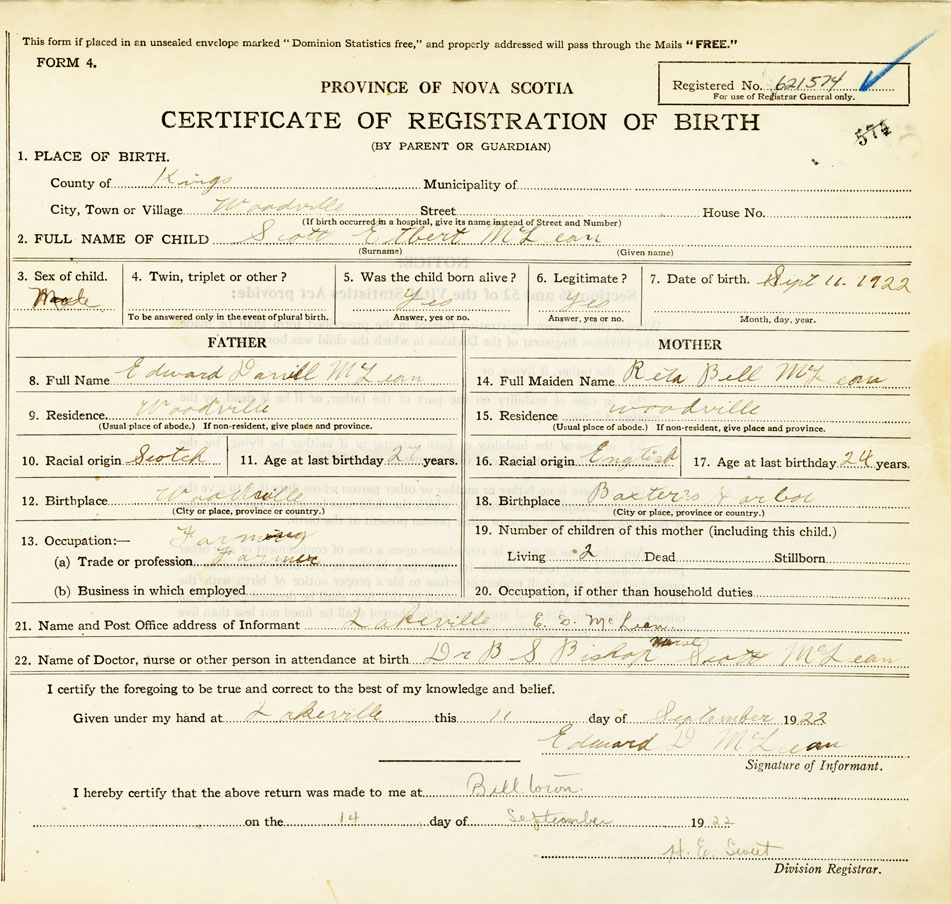 This form if placed in an unsealed envelope marked "Dominion Statistics free," and properly addressed will pass through the Mails "FREE."
FORM 4.
Registered No. 621574
For use of Registrar General only.
PROVINCE OF NOVA SCOTIA
CERTIFICATE OF REGISTRATION OF BIRTH
574
(BY PARENT OR GUARDIAN)
1. PLACE OF BIRTH.
County of Kings Municipality of
City, Town or Village Woodville Street House No.
(If birth occurred in a hospital, give its name instead of Street and Number)
2. FULL NAME OF CHILD Scott Elbert McLean
(Surname) (Given name)
3. Sex of child. 4. Twin, triplet or other? 5. Was the child born alive? 6. Legitimate? 7. Date of birth. Sept 11. 1922
Male Yes Yes
To be answered only in the event of plural birth. Answer, yes or no. Answer, yes or no. Month, day, year.
FATHER MOTHER
8. Full Name Edward McLean 14. Full Maiden Name Reta Bell McLean
9. Residence. Woodville 15. Residence woodville
(Usual place of abode.) If non-resident, give place and province. (Usual place of abode.) If non-resident, give place and province.
10. Racial origin Scotch 11. Age at last birthday 27 years. 16. Racial origin English 17. Age at last birthday 24 years.
12. Birthplace Woodville 18. Birthplace Baxters Harbor
(City or place, province or country.) (City or place, province or country.)
13. Occupation:— Farming 19. Number of children of this mother (including this child.)
(a) Trade or profession. Farmer Living 2 Dead Stillborn
(b) Business in which employed 20. Occupation, if other than household duties
21. Name and Post Office address of Informant Lakeville E. D. McLean
22. Name of Doctor, nurse or other person in attendance at birth Dr B S Bishop nurse Scott McLean
I certify the foregoing to be true and correct to the best of my knowledge and belief.
Given under my hand at Lakeville this 11 day of September 1922
Edward D McLean
Signature of Informant.
I hereby certify that the above return was made to me at Billtown.
on the 14 day of September 1922
H. E. Sweet
Division Registrar.